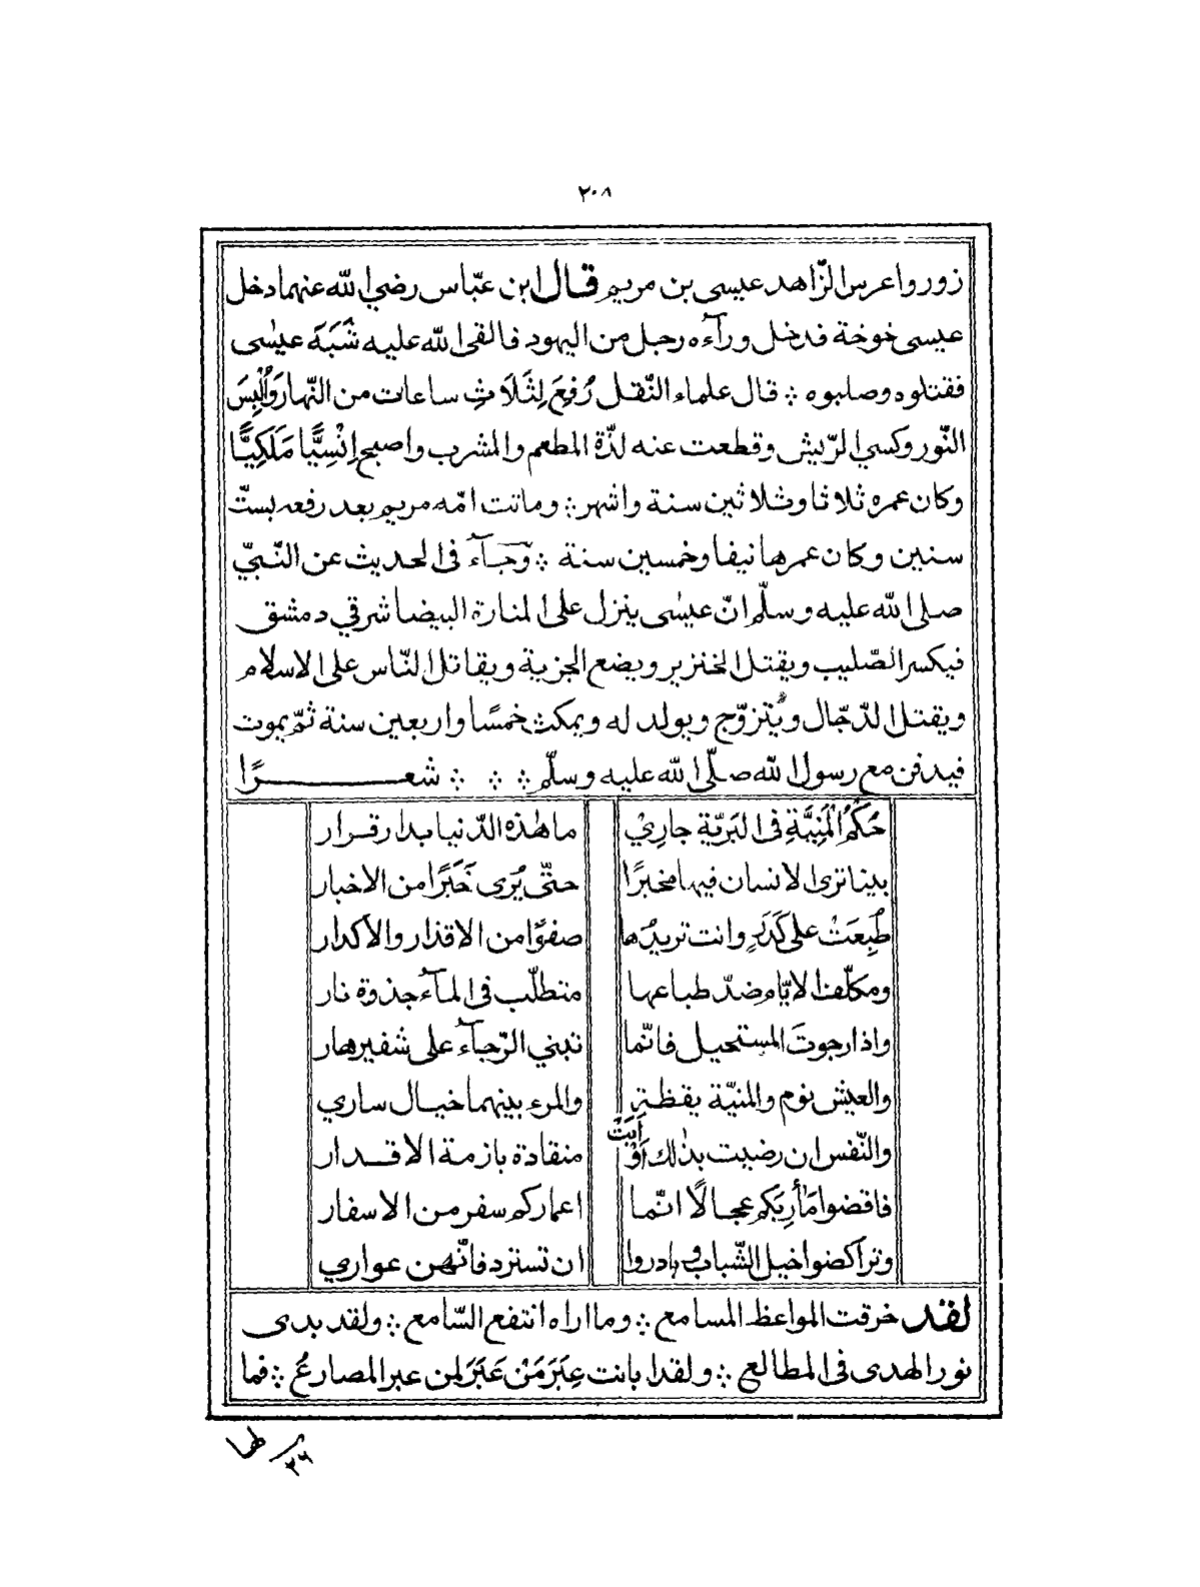 ٢٠٨
زوروا عرس الزّاهد عيسى بن مريم قال ابن عبّاس رضي الله عنهما دخل
عيسى خوخة فدخل ورآءه رجل من اليهود فالقى الله عليه شَبَهَ عيسٰى
فقتلوه وصلبوه ⁘ قال علماء النّقل رُفِعَ لِثَلَاثِ ساعات من النّهار وَاُلْبِسَ
النّور وكسي الرّيش وقطعت عنه لذّة المطعم والمشرب واصبح اِنْسِيًّا مَلَكِيًّا
وكان عمره ثلاثا وثلاثين سنة واشهر ⁘ وماتت امّه مريم بعد رفعه بستّ
سنين وكان عمرها نيفا وخمسين سنة ⁘ وجآء فى الحديث عن النّبيّ
صلى الله عليه وسلّم انّ عيسٰى ينزل على المنارة البيضا شرقي دمشق
فيكسر الصّليب ويقتل الخنزير ويضع الجزية ويقاتل النّاس على الاسلام
ويقتل الدّجّال ويُتزوّج ويولد له ويمكث خمسًا واربعين سنة ثمّ يموت
فيدفن مع رسول الله صلّى الله عليه وسلّم ⁘ ⁘ ⁘ شعـــرًا
حُكْمُ الْمَنِيَّةِ فى البَرِيّةِ جارِيْ ما هٰذه الدّنيا بدار قرار
بينا ترى الانسان فيها مخبرًا حتّى يُرى خَبَرًا من الاخبار
طُبِعَتْ على كَدَرٍ وانت تريدُها صفوًا من الاقذار والاكدار
ومكلّف الايّام ضدّ طباعها متطلّب فى المآء جذوة نار
واذا رجوتَ المستحيل فانّما تبني الرّجآء على شفير هار
والعيش نوم والمنيّة يقظة والمرء بينهما خيال ساري
والنّفس ان رضيت بذٰلك اَوْ اَبَتْ منقادة بازمة الاقدار
فاقضوا مَأرِبَكم عجالًا انّما اعماركم سفر من الاسفار
وتراكضوا خيل الشّباب وبادروا ان تسترد فانّهن عواري
لقد خرقت المواعظ المسامع ⁘ وما اراه انتفع السّامع ⁘ ولقد بدى
نور الهدى فى المطالع ⁘ ولقد ابانت عِبَرَ مَنْ عَبَرَ لمن عبر المصارعُ ⁘ فما
لها
٢٦